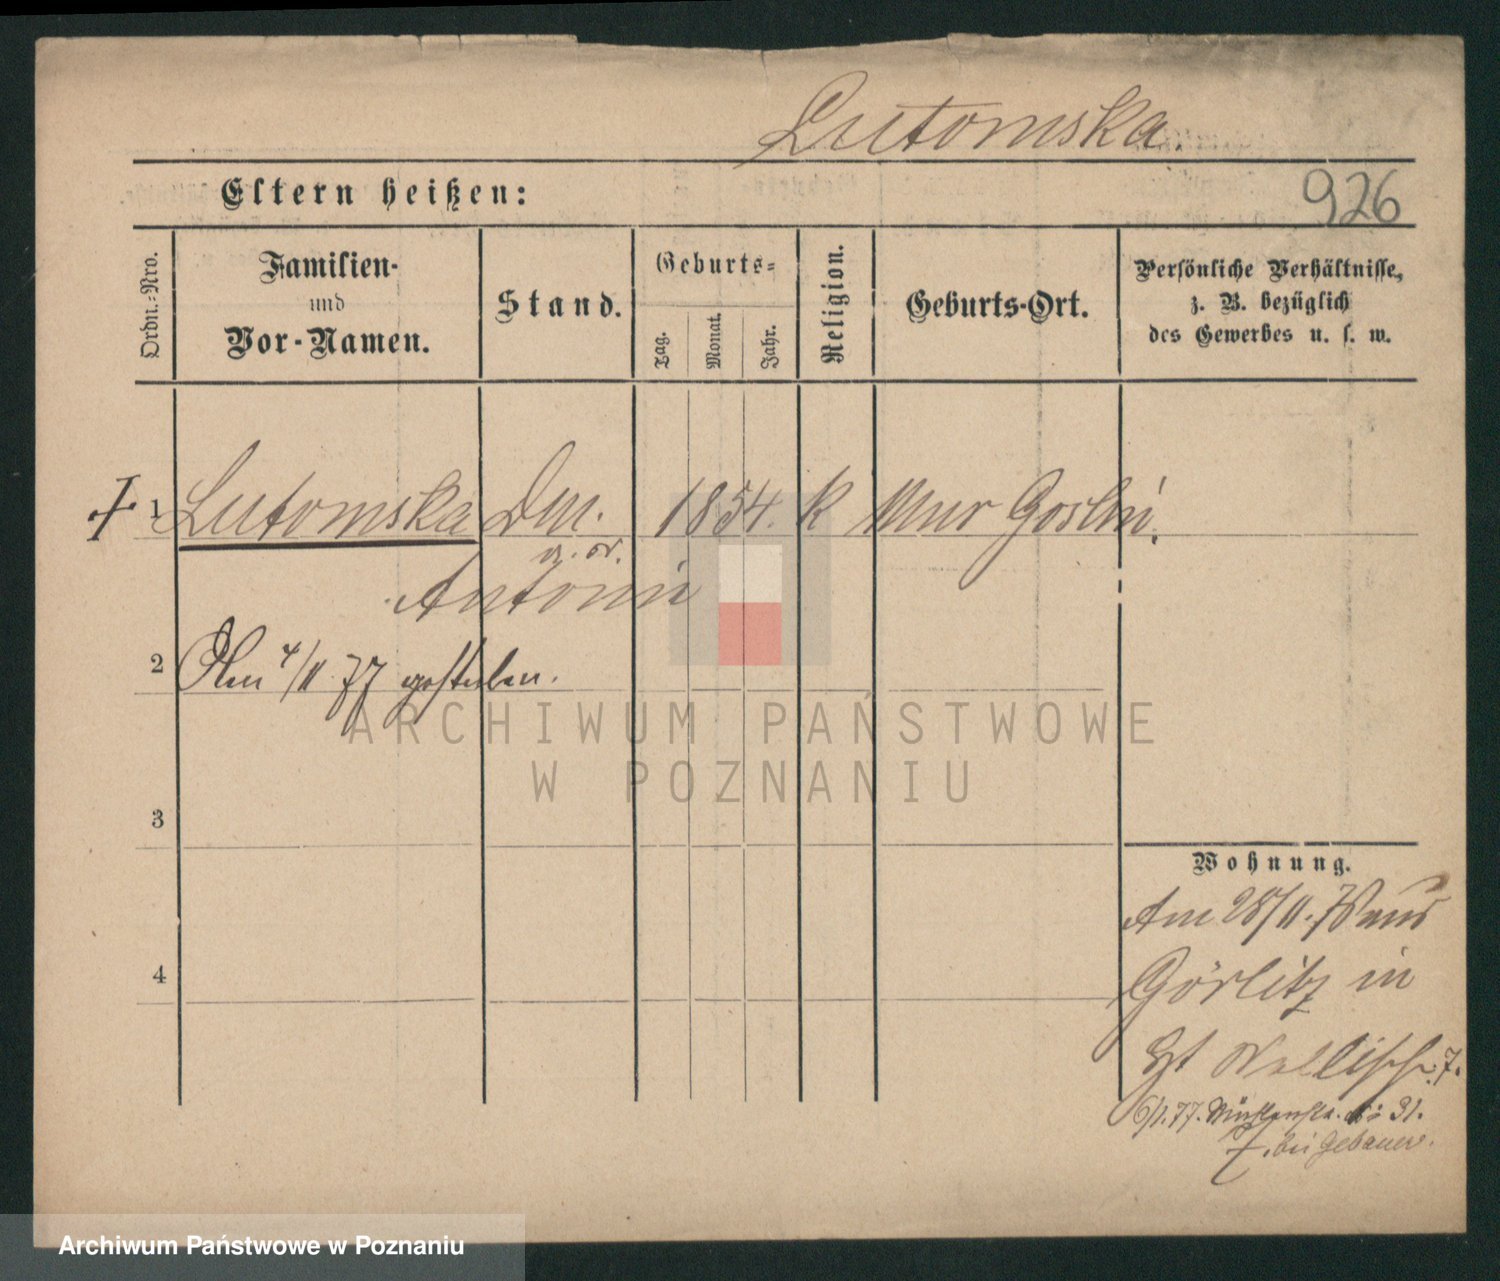 Lutomska.
Eltern heißen:
926
Ordn.-Nro.
Familien-
und
Vor-Namen.
Stand.
Geburts-
Tag.
Monat.
Jahr.
Religion.
Geburts-Ort.
Persönliche Verhältnisse,
z. B. bezüglich
des Gewerbes u. s. w.
1 Lutomska 1854. k Mur Goslin.
Antonie
2 Am 4/11 77 gestorben.
ARCHIWUM PAŃSTWOWE
W POZNANIU
3
4
Wohnung.
Am 28/11. 76 aus
Görlitz in
7.
6/1. 77. 31.
bei Gebauer.
Archiwum Państwowe w Poznaniu